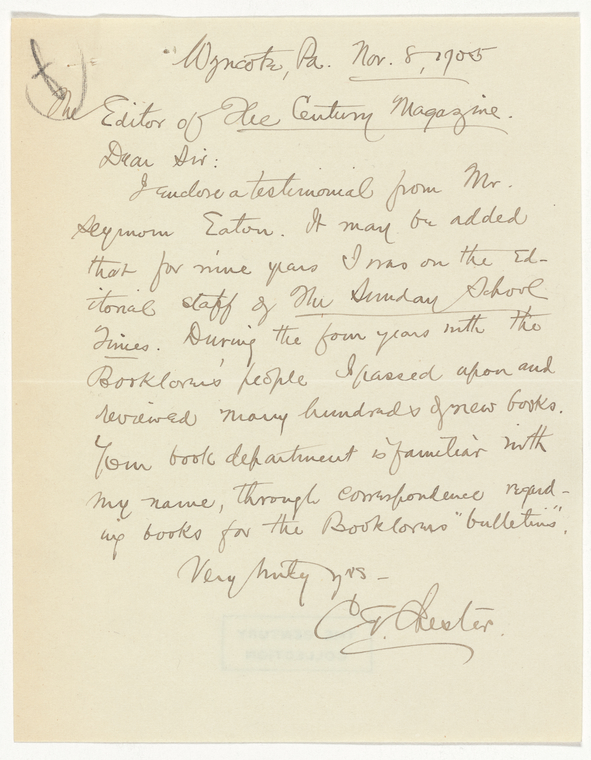 Wyncote, Pa. Nov. 8, 1905
The Editor of The Century Magazine.
Dear Sir:
I enclose a testimonial from Mr.
Seymour Eaton. It may be added
that for nine years I was on the Ed-
itorial staff of The Sunday School
Times. During the four years with the
Booklovers' people I passed upon and
reviewed many hundreds of new books.
Your book department is familiar with
my name, through correspondence regard-
ing books for the Booklovers "bulletins".
Very truly yrs -
Chester.